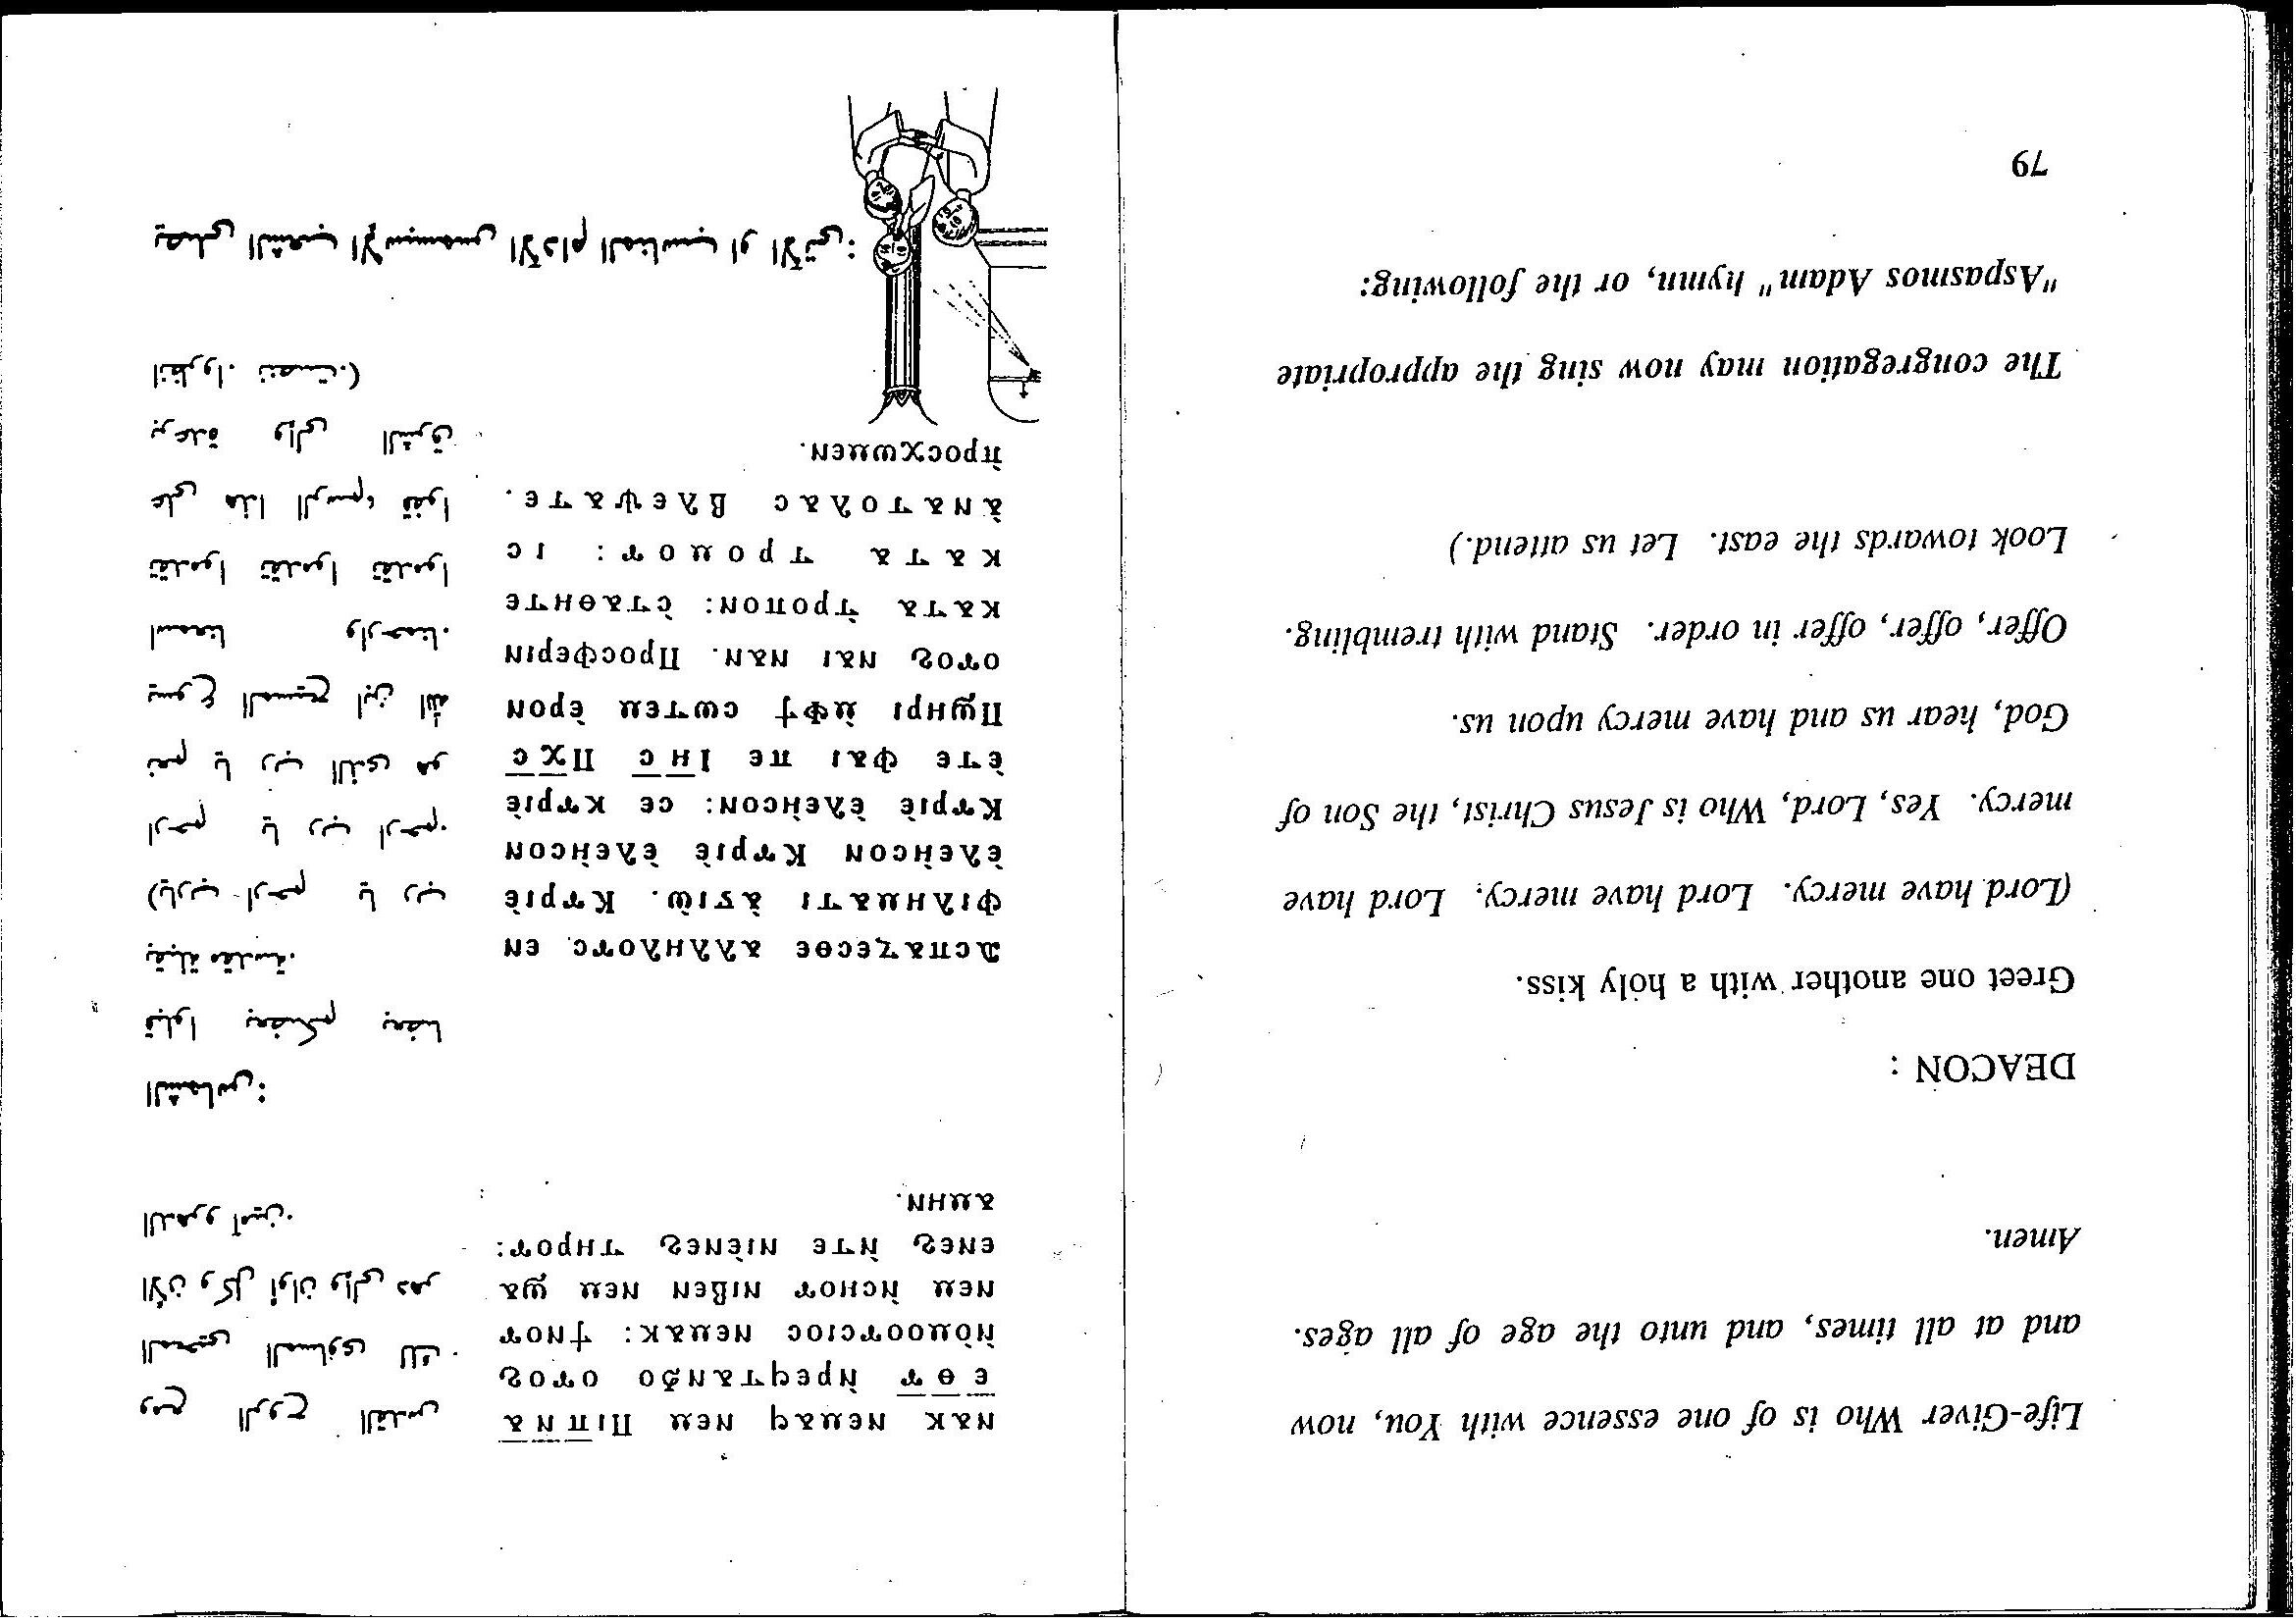 Life-Giver Who is of one essence with You, now
and at all times, and unto the age of all ages.
Amen.
DEACON :
Greet one another with a holy kiss.
(Lord have mercy. Lord have mercy. Lord have
mercy. Yes, Lord, Who is Jesus Christ, the Son of
God, hear us and have mercy upon us.
Offer, offer, offer in order. Stand with trembling.
Look towards the east. Let us attend.)
The congregation may now sing the appropriate
"Aspasmos Adam" hymn, or the following:
79
ⲛⲁⲕ ⲛⲉⲙⲁϥ ⲛⲉⲙ Ⲡⲓⲡⲛⲁ
ⲉⲑⲩ ⲛ̀ⲣⲉϥⲧⲁⲛϧⲟ ⲟⲩⲟϩ
ⲛ̀ⲟ̀ⲙⲟⲟⲩⲥⲓⲟⲥ ⲛⲉⲙⲁⲕ: ϯⲛⲟⲩ
ⲛⲉⲙ ⲛ̀ⲥⲏⲟⲩ ⲛⲓⲃⲉⲛ ⲛⲉⲙ ϣⲁ
ⲉⲛⲉϩ ⲛ̀ⲧⲉ ⲛⲓⲉ̀ⲛⲉϩ ⲧⲏⲣⲟⲩ:
ⲁⲙⲏⲛ.
Ⲁⲥⲡⲁⲍⲉⲥⲑⲉ ⲁⲗⲗⲏⲗⲟⲩⲥ ⲉⲛ
ⲫⲓⲗⲏⲙⲁⲧⲓ ⲁ̀ⲅⲓⲱ̀. Ⲕⲩⲣⲓⲉ̀
ⲉ̀ⲗⲉⲏ̀ⲥⲟⲛ Ⲕⲩⲣⲓⲉ̀ ⲉ̀ⲗⲉⲏ̀ⲥⲟⲛ
Ⲕⲩⲣⲓⲉ̀ ⲉ̀ⲗⲉⲏ̀ⲥⲟⲛ: ⲥⲉ ⲕⲩⲣⲓⲉ̀
ⲉ̀ⲧⲉ ⲫⲁⲓ ⲡⲉ Ⲓⲏⲥ Ⲡⲭⲥ
Ⲡϣⲏⲣⲓ ⲙ̀ⲫϯ ⲥⲱⲧⲉⲙ ⲉ̀ⲣⲟⲛ
ⲟⲩⲟϩ ⲛⲁⲓ ⲛⲁⲛ. Ⲡⲣⲟⲥⲫⲉⲣⲓⲛ
ⲕⲁⲧⲁ ⲧ̀ⲣⲟⲡⲟⲛ: ⲥ̀ⲧⲁⲑⲏⲧⲉ
ⲕⲁⲧⲁ ⲧⲣⲟⲙⲟⲩ: ⲓⲥ
ⲁ̀ⲛⲁⲧⲟⲗⲁⲥ Ⲃⲗⲉⲯⲁⲧⲉ.
ⲡ̀ⲣⲟⲥⲭⲱⲙⲉⲛ.
ومع الروح القدس
المحيى المساوى لك
الآن وكل أوان وإلى دهر
الدهور آمين.
الشماس:
قبلوا بعضكم بعضا
بقبلة مقدسة.
(يارب ارحم يا رب
ارحم يا رب ارحم.
نعم يا رب الذى هو
يسوع المسيح ابن الله
اسمعنا وارحمنا.
تقدموا تقدموا تقدموا
على هذا الرسم، قفوا
برعدة وإلى الشرق
انظروا. ننصت.)
يصلى الشعب الإسبسمس الآدام المناسب او الآتى: